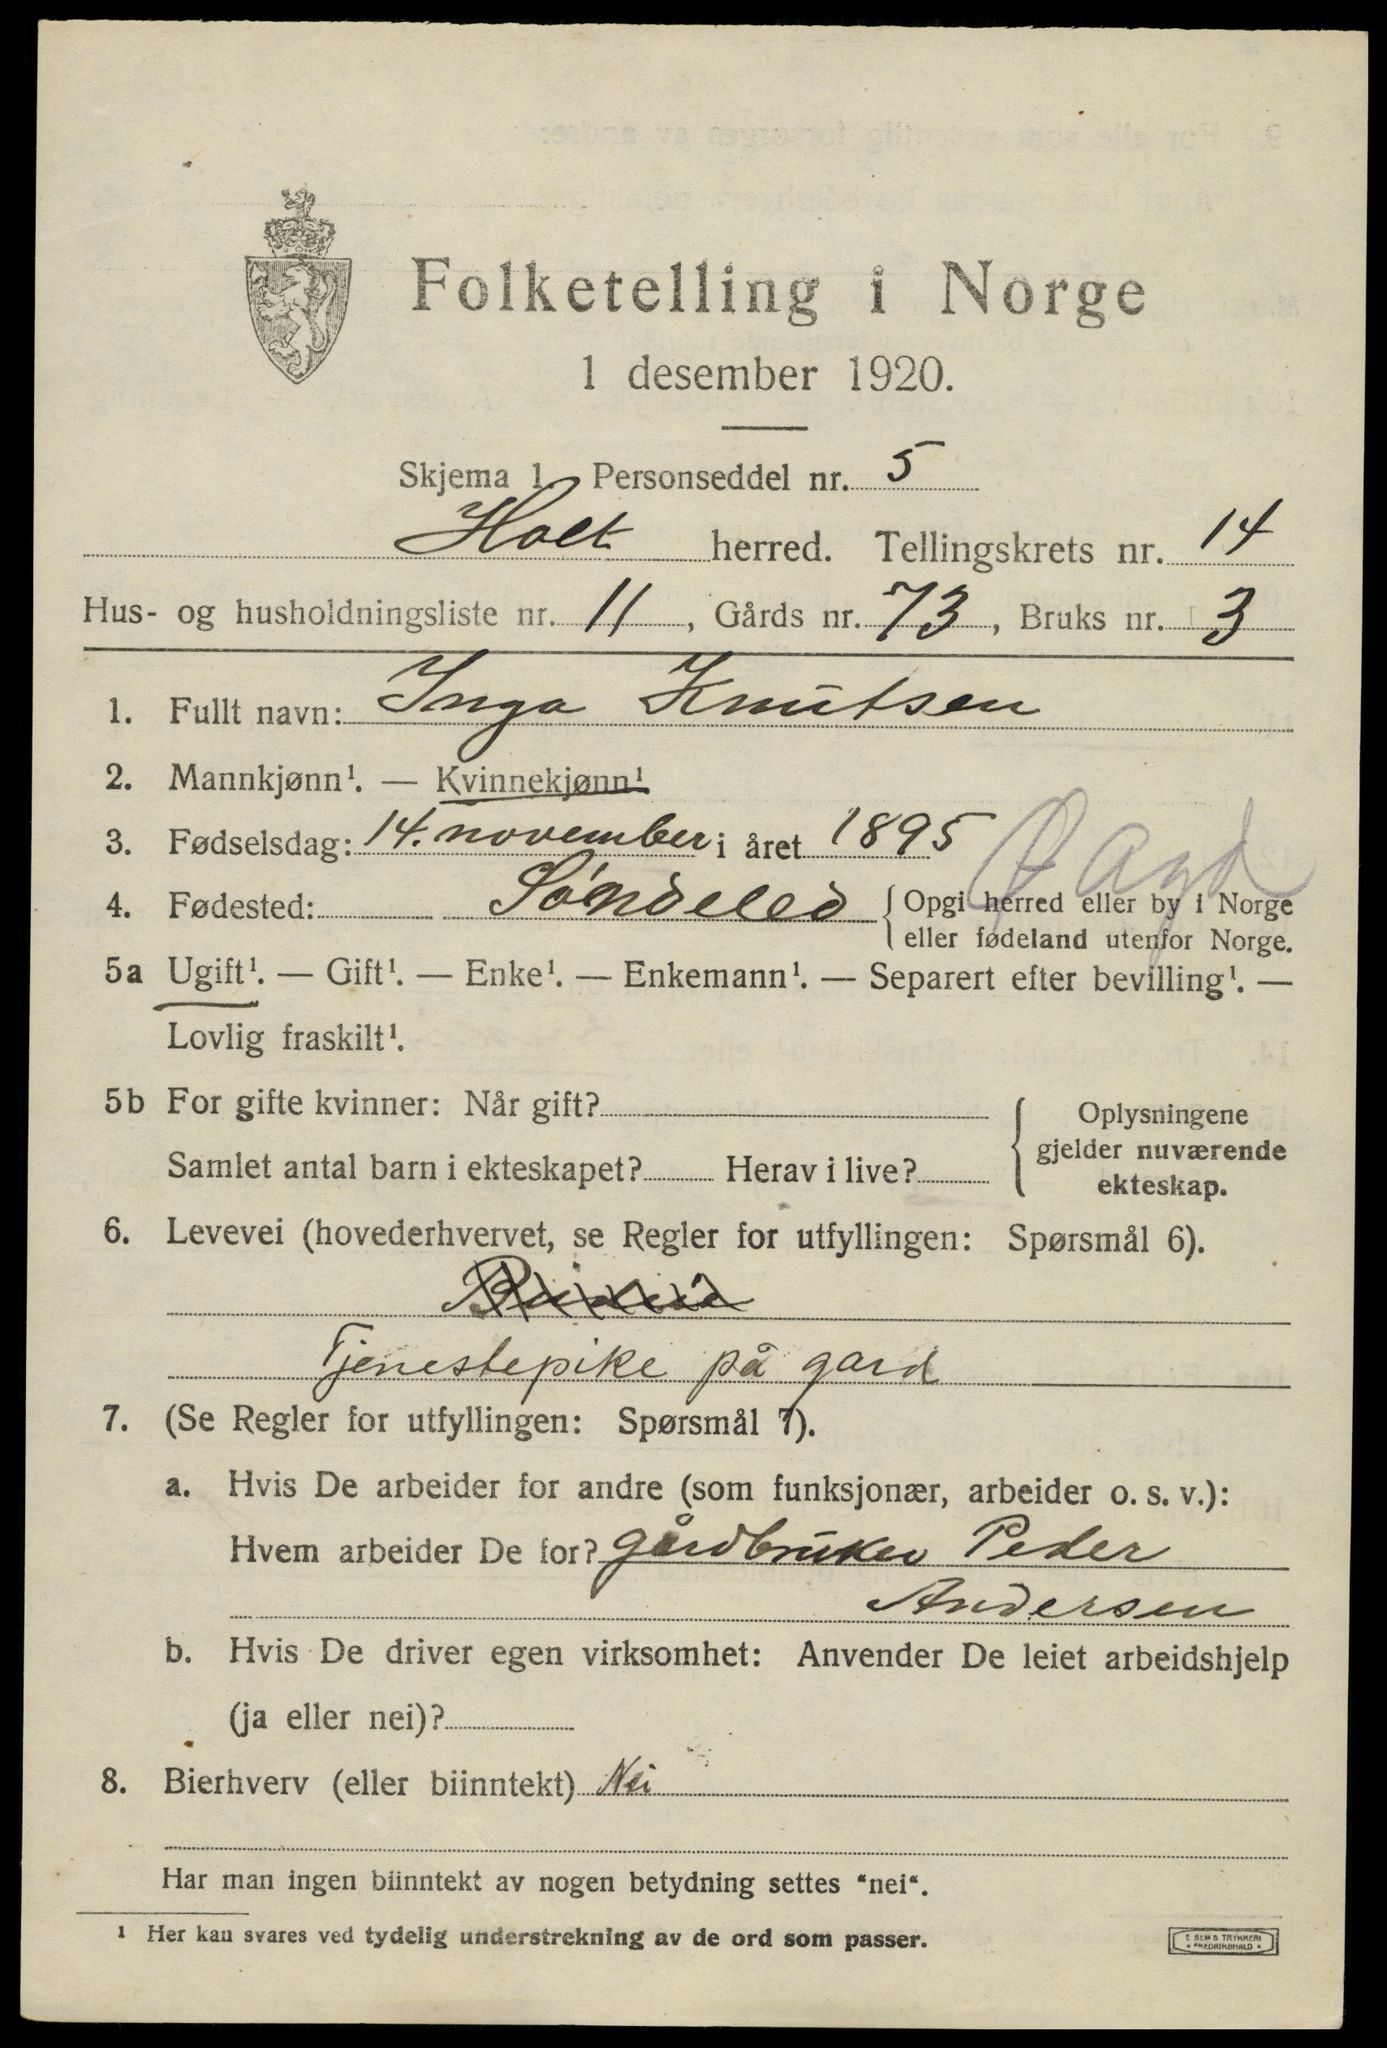 Folketelling i Norge
1 desember 1920.
Skjema 1. Personseddel nr. 5
Holt herred. Tellingskrets nr. 14
Hus- og husholdningsliste nr. 11, Gårds nr. 73, Bruks nr. 3
1. Fullt navn: Inga Knutsen
2. Mannkjønn¹. — Kvinnekjønn¹
3. Fødselsdag: 14. november i året 1895
Ø Agd
4. Fødested: Søndeled { Opgi herred eller by i Norge
eller fødeland utenfor Norge.
5a Ugift¹. — Gift¹. — Enke¹. — Enkemann¹. — Separert efter bevilling¹. —
Lovlig fraskilt¹.
5b For gifte kvinner: Når gift? { Oplysningene
gjelder nuværende
Samlet antal barn i ekteskapet? Herav i live? ekteskap.
6. Levevei (hovederhvervet, se Regler for utfyllingen: Spørsmål 6).
Tjenestepike på gard
7. (Se Regler for utfyllingen: Spørsmål 7).
a. Hvis De arbeider for andre (som funksjonær, arbeider o. s. v.):
Hvem arbeider De for? gårdbruker Peder
Andersen
b. Hvis De driver egen virksomhet: Anvender De leiet arbeidshjelp
(ja eller nei)?
8. Bierhverv (eller biinntekt) Nei
Har man ingen biinntekt av nogen betydning settes "nei".
¹ Her kan svares ved tydelig understrekning av de ord som passer.
E SEMS TRYKKERI
FREDRIKSHALD